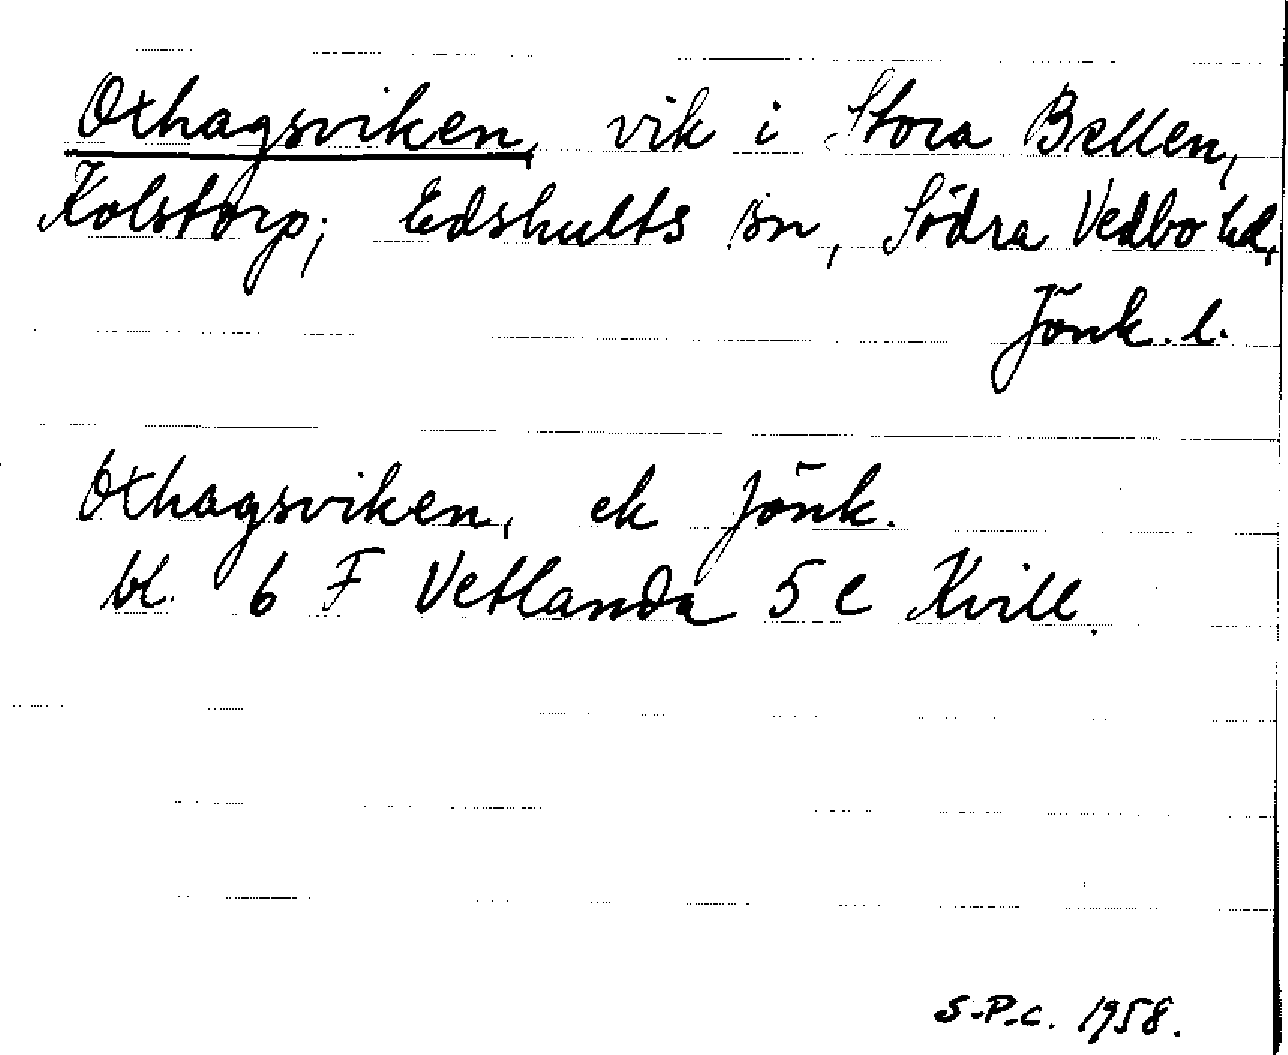 Oxhagsviken, vik i Stora Bellen,
Kolstorp; Edshults sn, Södra Vedbo hd,
Jönk. l.
Oxhagsviken, ek Jönk.
bl. 6 F Vetlanda 5 e Kvill.
S-P-c. 1958.